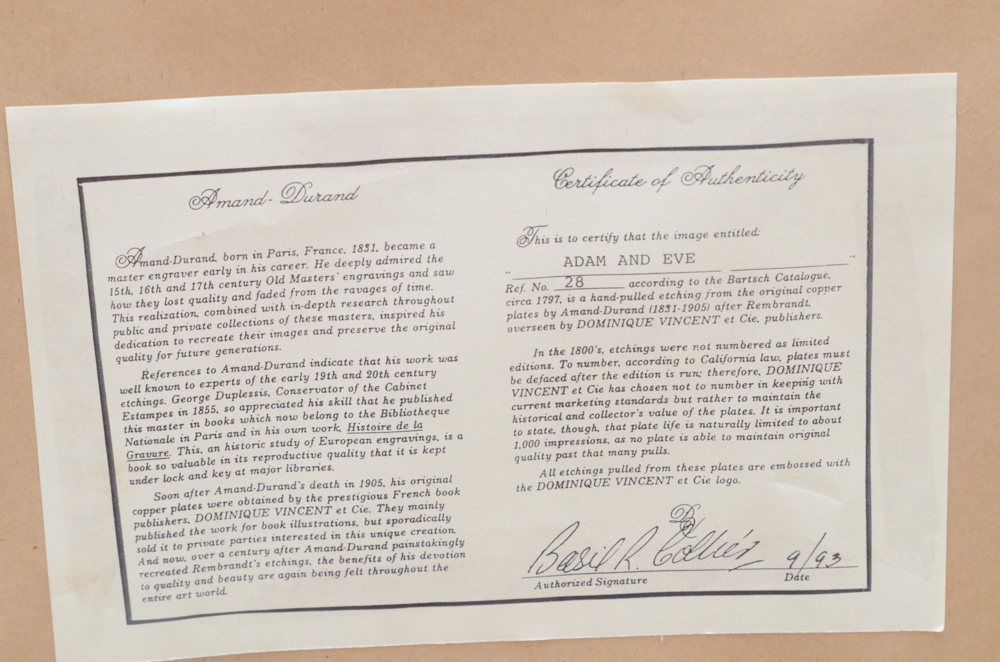 Amand-Durand
Amand-Durand, born in Paris, France, 1831, became a
master engraver early in his career. He deeply admired the
15th, 16th and 17th century Old Masters' engravings and saw
how they lost quality and faded from the ravages of time.
This realization, combined with in-depth research throughout
public and private collections of these masters, inspired his
dedication to recreate their images and preserve the original
quality for future generations.
References to Amand-Durand indicate that his work was
well known to experts of the early 19th and 20th century
etchings. George Duplessis, Conservator of the Cabinet
Estampes in 1855, so appreciated his skill that he published
this master in books which now belong to the Bibliotheque
Nationale in Paris and in his own work, Histoire de la
Gravure. This, an historic study of European engravings, is a
book so valuable in its reproductive quality that it is kept
under lock and key at major libraries.
Soon after Amand-Durand's death in 1905, his original
copper plates were obtained by the prestigious French book
publishers, DOMINIQUE VINCENT et Cie. They mainly
published the work for book illustrations, but sporadically
sold it to private parties interested in this unique creation.
And now, over a century after Amand-Durand painstakingly
recreated Rembrandt's etchings, the benefits of his devotion
to quality and beauty are again being felt throughout the
entire art world.
Certificate of Authenticity
This is to certify that the image entitled:
" ADAM AND EVE "
Ref. No. 28 according to the Bartsch Catalogue,
circa 1797, is a hand-pulled etching from the original copper
plates by Amand-Durand (1831-1905) after Rembrandt,
overseen by DOMINIQUE VINCENT et Cie, publishers.
In the 1800's, etchings were not numbered as limited
editions. To number, according to California law, plates must
be defaced after the edition is run; therefore, DOMINIQUE
VINCENT et Cie has chosen not to number in keeping with
current marketing standards but rather to maintain the
historical and collector's value of the plates. It is important
to state, though, that plate life is naturally limited to about
1,000 impressions, as no plate is able to maintain original
quality past that many pulls.
All etchings pulled from these plates are embossed with
the DOMINIQUE VINCENT et Cie logo.
Basil R. Collier 9/93
Authorized Signature Date